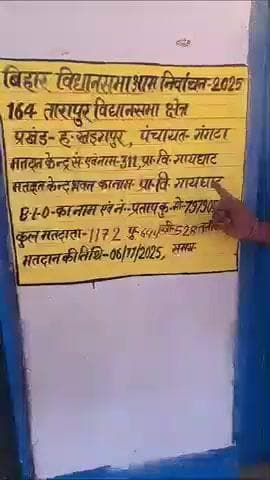 बिहार विधानसभा आम निर्वाचन-2025
164 तारापुर विधानसभा क्षेत्र
प्रखंड-ह०खड़गपुर, पंचायत-गंगटा
मतदान केन्द्र सं० एवं नाम-311, प्रा० वि० गायघाट
मतदान केन्द्र भवन का नाम-प्रा० वि० गायघाट
B.L.O-का नाम एवं नं०-प्रताप कु० मो०-
कुल मतदाता-1172 पु०-644 528
मतदान की तिथि-06/11/2025, समय-